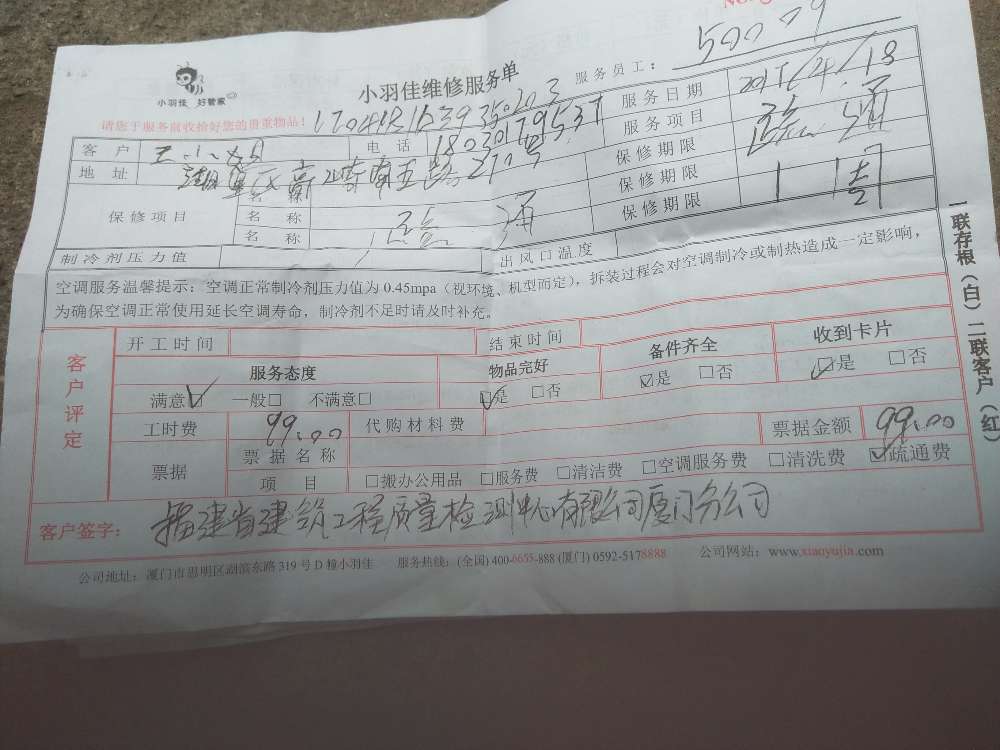 小羽佳 好管家
小羽佳维修服务单
服务员工: 50009
请您于服务前收拾好您的贵重物品!
服务日期
客户 王小姐 电话 18030179537
服务项目 疏通
地址 湖里区 270号
保修期限
保修项目 名称
名称 疏通 保修期限 1周
名称 保修期限
制冷剂压力值 出风口温度
空调服务温馨提示:空调正常制冷剂压力值为 0.45mpa(视环境、机型而定),拆装过程会对空调制冷或制热造成一定影响,
为确保空调正常使用延长空调寿命,制冷剂不足时请及时补充。
一联存根(白)二联客户(红)
客户评定
开工时间 结束时间
服务态度 物品完好 备件齐全 收到卡片
满意☑ 一般□ 不满意□ ☑是 □否 ☑是 □否 ☑是 □否
工时费 99.00 代购材料费 票据金额 99.00
票据 票据名称
项目 □搬办公用品 □服务费 □清洁费 □空调服务费 □清洗费 ☑疏通费
客户签字: 福建省建筑工程质量检测中心有限公司厦门分公司
公司地址:厦门市思明区湖滨东路 319 号 D 幢小羽佳 服务热线:(全国) 400-0655-888 (厦门) 0592-5178888 公司网站:www.xiaoyujia.com